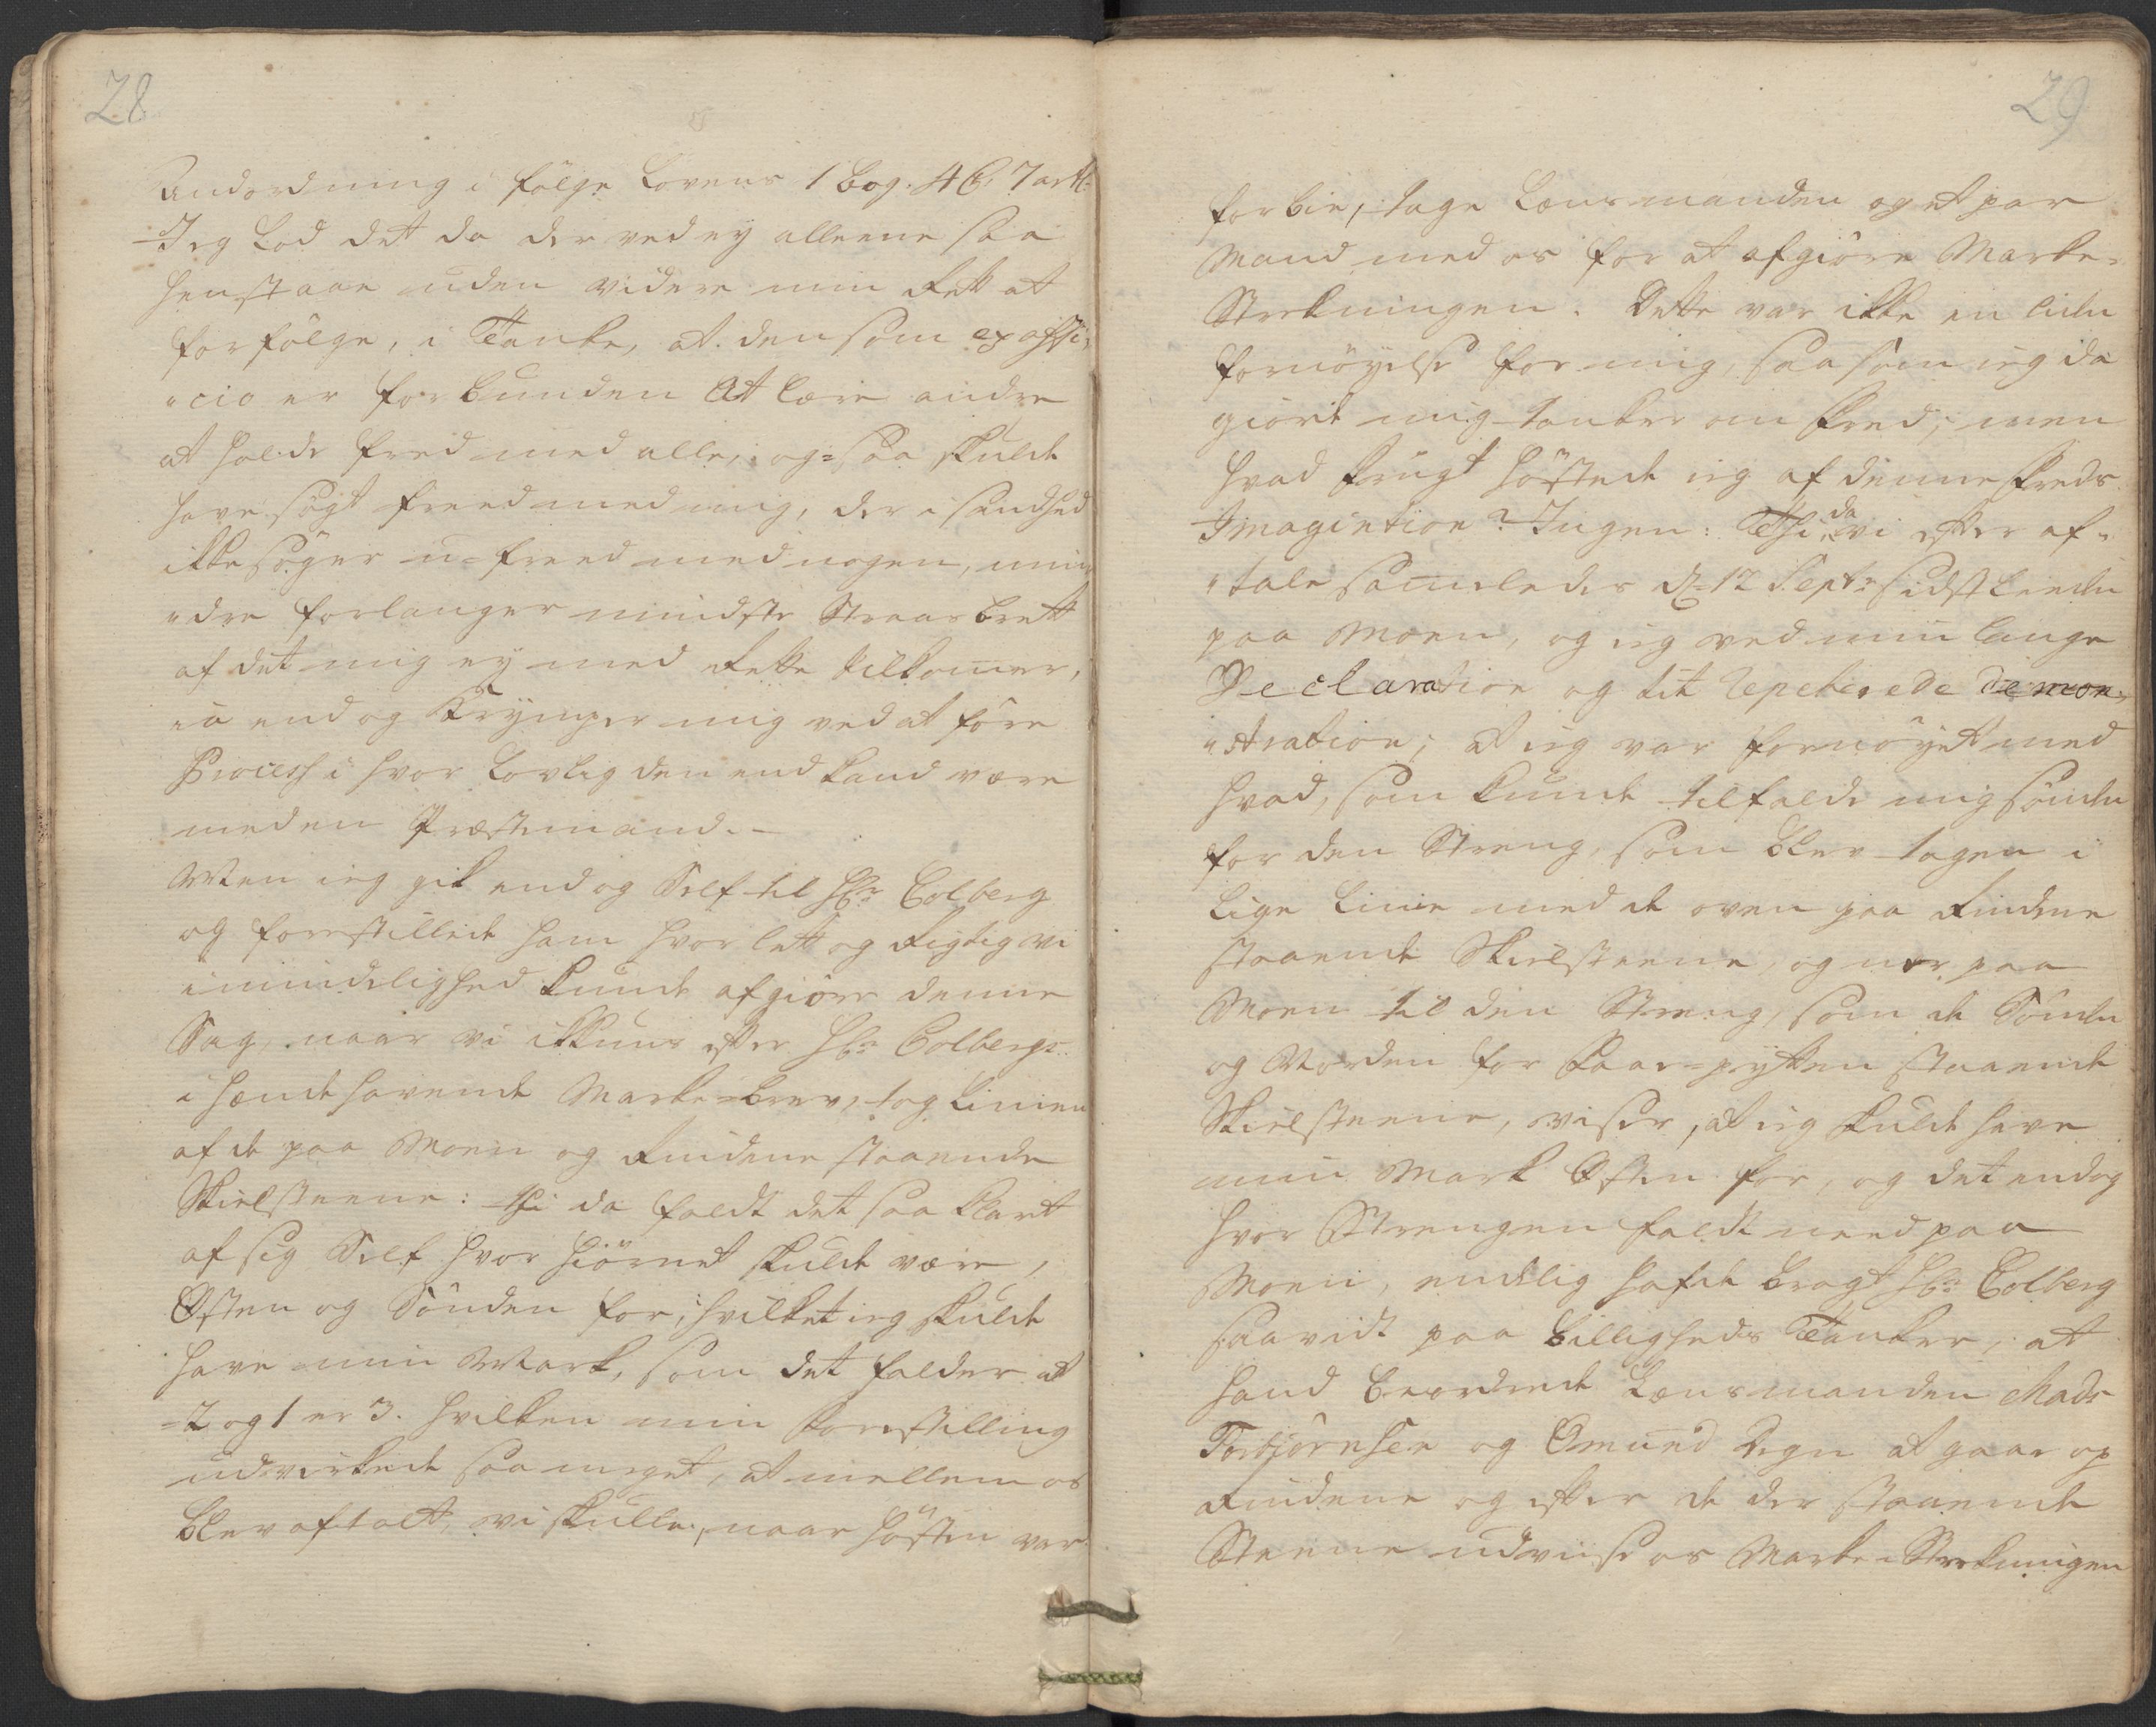 28
Andordning i følge Lovens 1 Bog. 4 C. 7 art:
Jeg Lod det da der ved ey alleene saa
henstaae uden videre min Rett at
forfølge, i Tanke, at den som ex offi-
"cio er forbunden At lære andre
at holde fred med alle, og-saa skulde
have søgt freed med mig, der i sandhed
ikke søger u-freed med nogen, min-
"dre forlanger mindste Straaebrett
af det mig ey med Rette tilkomer,
ia end og Krymper mig ved at føre
Process i hvor Lovlig den end kand være
med en Præstemand. -
Men ieg gik end og Self til Hr: Colberg
og forestillede ham hvor lett og Rigtig vi
i mindelighed kunde afgiøre denne
Sag, naar vi ikkuns efter Hr: Colbergs
i hænde havende Marke-brev, tog Linien
af de paa Moen og Rindene staaende
Skielsteene: thi da faldt det saa klart
af sig Self hvor hiørnet skulde være,
Østen og Sønden for, hvilket ieg skulde
have min Mark, som det falder at
2 og 1 er 3. hvilken min forestilling
udvirkede saa meget, at mellem os
blev aftalt, vi skulle, naar høsten var
29
forbie, tage Lensmanden og et par
Mand med os for at afgiøre Marke-
Strekningen. Dette var ikke en liden
fornøyelse for mig, saasom ieg da
giorde mig tanker om fred; men
hvad frugt høstede ieg af denne freds
Imagination? Ingen: Thi da vi efter af-
"tale samledes d: 12 Septr: sidstleeden
paa Moen, og ieg ved min lange
Declaration og tit repeterede demon-
"stration; at ieg var fornøyet med
hvad, som kunde tilfalde mig sønden
for den Streng, som blev tagen i
Lige Linie med de oven paa Rindene
staaende Skielsteene, og ner paa
Moen til den Streng, som de Sønden
og Norden for staaende
Skielsteene, viser, at ieg skulde have
min Mark Østen for, og det endog
hvor Strengen faldt need paa
Moen, endelig hafde bragt Hr: Colberg
saavidt paa billigheds Tanker, at
hand beordrede Lensmanden Mads
Torbiørnsen og Omund Degn at gaae op
Rindene og efter de der staaende
Steene udviise os Marke-Strekningen